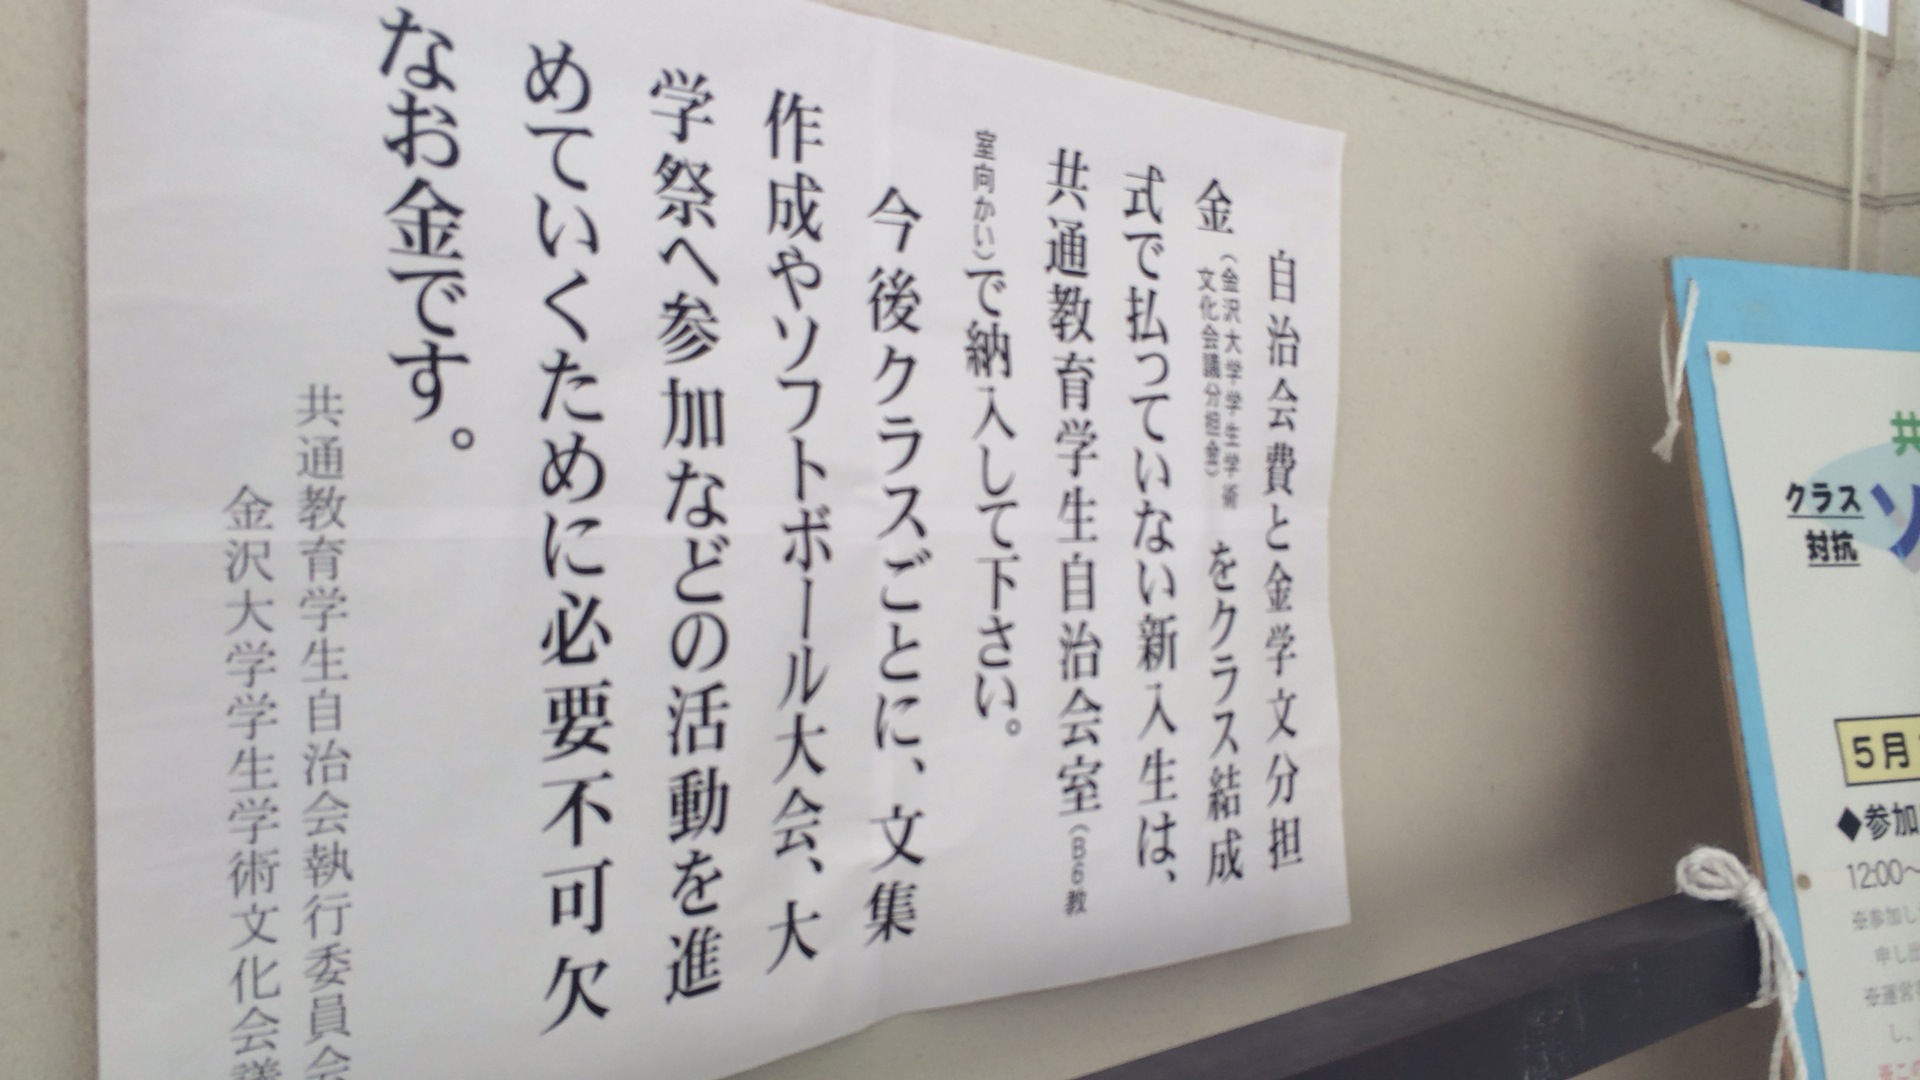 自治会費と金学文分担
金（金沢大学学生学術
文化会議分担金）をクラス結成
式で払っていない新入生は、
共通教育学生自治会室（B6教
室向かい）で納入して下さい。
今後クラスごとに、文集
作成やソフトボール大会、大
学祭へ参加などの活動を進
めていくために必要不可欠
なお金です。
共通教育学生自治会執行委員会
金沢大学学生学術文化会議
共
クラス
対抗
ソ
5月
◆参加
12:00～
※参加し
申し出
※運営
し、
※この